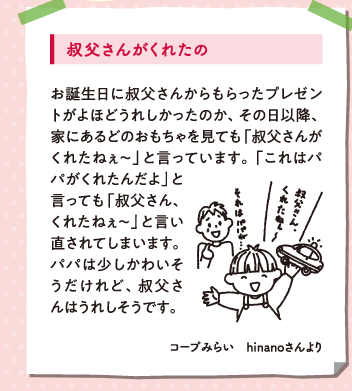 叔父さんがくれたの
お誕生日に叔父さんからもらったプレゼン
トがよほどうれしかったのか、その日以降、
家にあるどのおもちゃを見ても「叔父さんが
くれたねぇ～」と言っています。「これはパ
パがくれたんだよ」と
言っても「叔父さん、
くれたねぇ～」と言い
直されてしまいます。
パパは少しかわいそ
うだけれど、叔父さ
んはうれしそうです。
叔父さん、
くれたねぇ～
それはパパが…
コープみらい hinanoさんより